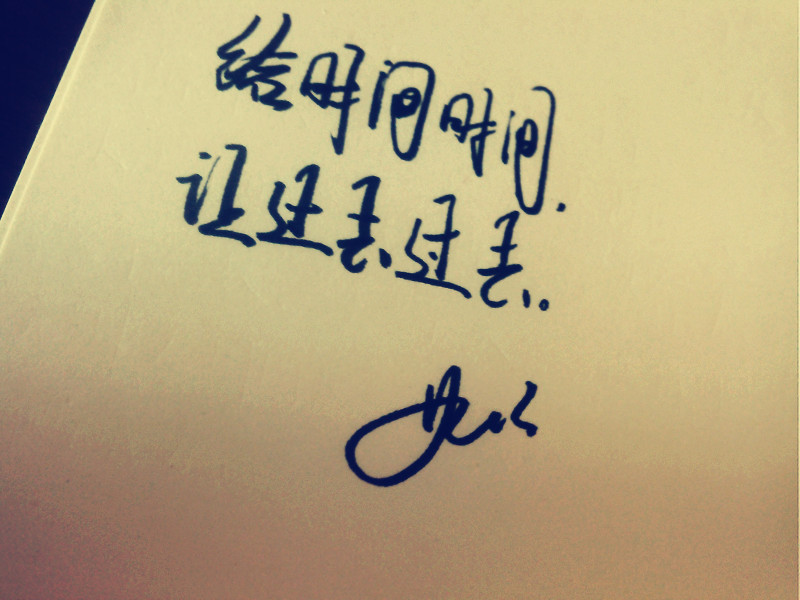 给时间时间.
让过去过去.